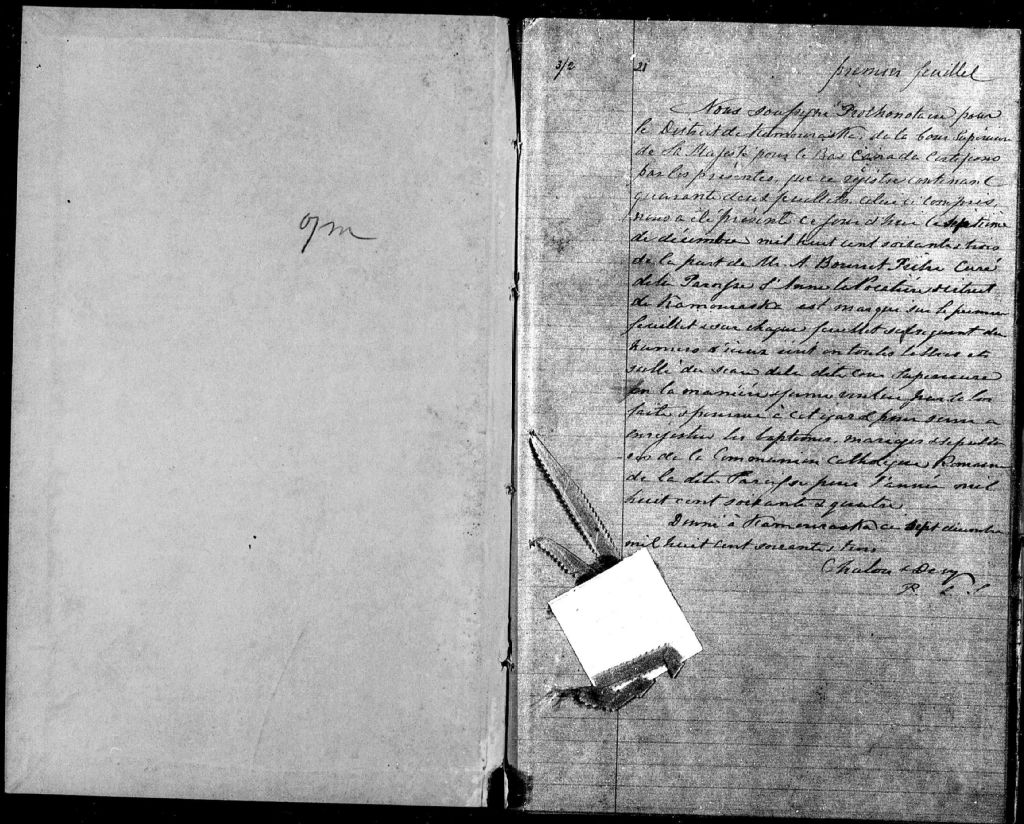 3/2 21
premier feuillet
Nous soussigné Prothonotaire pour
le District de Kamouraska, de la Cour Supérieure
de Sa Majesté pour le Bas Canada Certifions
par les présentes, que ce régistre contenant
quarante deux feuillets celui ci compris
nous a été présenté ce jour d'hui le septieme
de décembre mil huit cent soixante & trois
de la part de Mr A Bourret Ptre Curé
de la Paroisse Ste Anne la Pocatière district
de Kamouraska est marqué sur le premier
feuillet & sur chaque feuillet subsequent du
numero d'iceux ecrit en toutes lettres et
scellé du sceau de la dite cour Superieure
en la manière & forme voulue par la loi
faite & pourvue à cet egard pour servir a
enregistrer les baptêmes, mariages & sepultures
de la Communion Catholique Romaine
de la dite Paroisse pour l'année mil
huit cent soixante & quatre
Donné à Kamouraska ce sept decembre
mil huit cent soixante & trois
Chalou &
P. C. S.